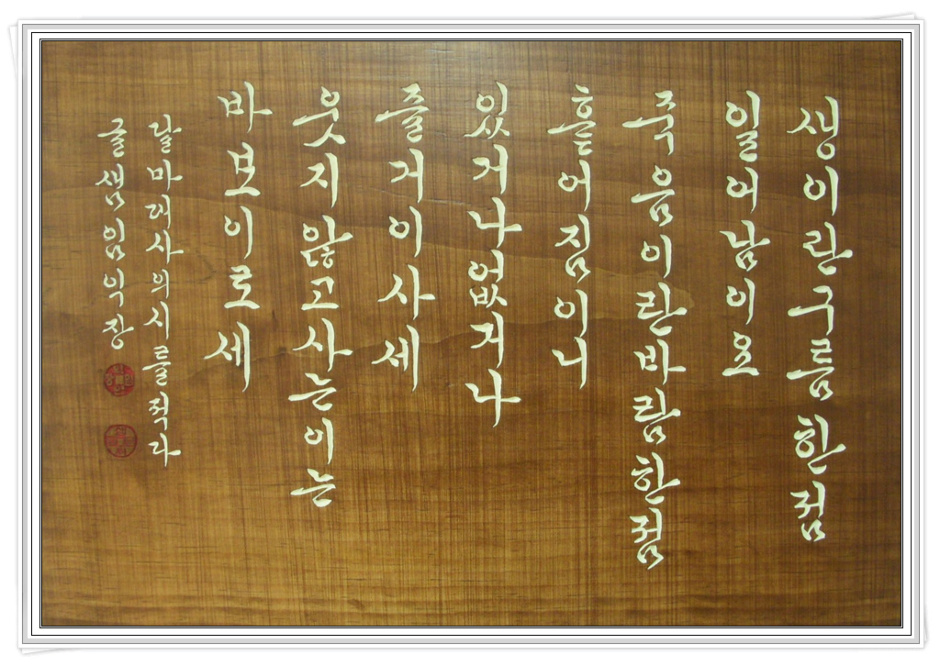 생이란 구름 한 점
일어남이요
죽음이란 바람 한 점
흩어짐이니
있거나 없거나
즐거이 사세
웃지 않고 사는 이는
바보이로세
달마대사의 시를 적다
글샘 임익장